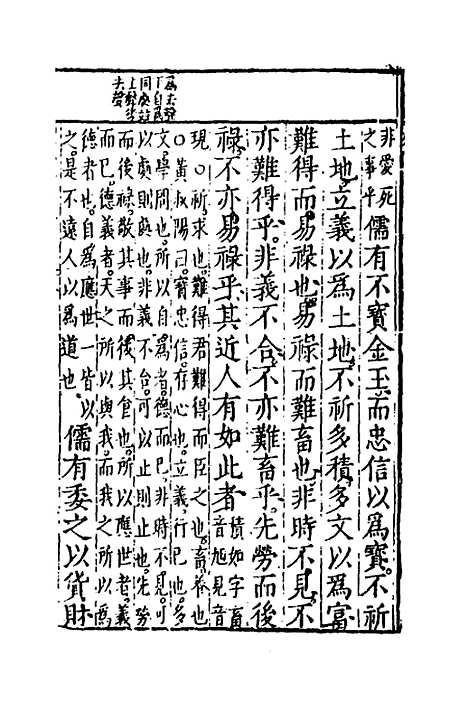 為去聲
下自為
非愛死
之事乎
儒有不寶金玉。而忠信以為寶。不祈
土地。立義以為土地。不祈多積。多文以為富
難得而易祿也。易祿而難畜也。非時不見。不
亦難得乎。非義不合。不亦難畜乎。先勞而後
祿。不亦易祿乎。其近人有如此者
積如字畜
音旭見音
現〇祈。求也。難得君難得而臣之也。畜。養也
〇黃叔陽曰。寶忠信。存心也。立義。行己也。多
文。學問也。所以自為者。德而已。非時不見。可
以處則處也。非義不合。可以止則止也。先勞
而後祿。敬其事而後其食也。所以應世者。義
而已。德義者。天之所以與我。而我之所以為
德者也。自為應世一皆以
之。是不遠人以為道也
儒有委之以貨財